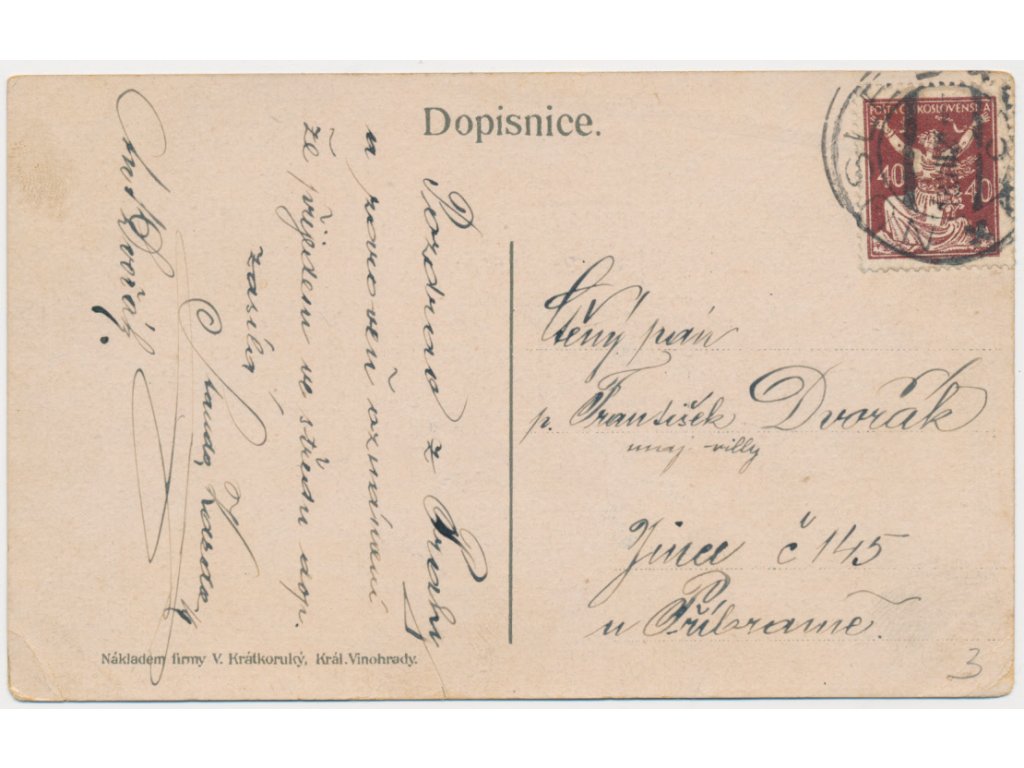 Dopisnice.
POŠTA ČESKOSLOVENSKÁ
40 40
Pozdrav z Prahy
a zároveň oznámení
že přijedem ve středu dop.
zasílá
Ant Dvořák
Ctěný pán
p. František Dvořák
maj. villy
Jince č 145
u Příbramě.
Nákladem firmy V. Krátkoruký, Král. Vinohrady.
3